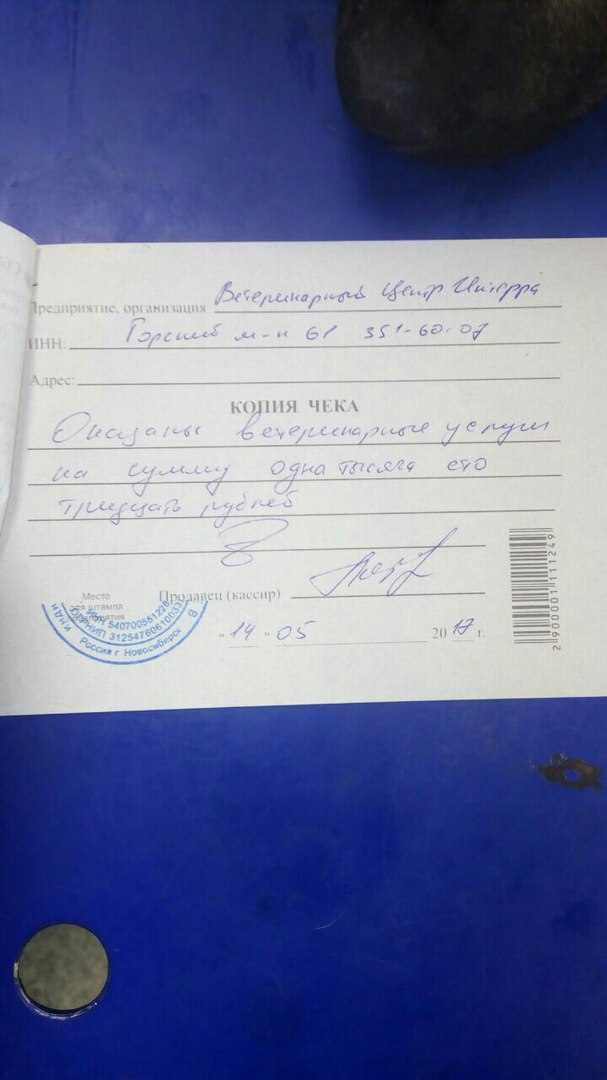 Предприятие, организация Ветеринарный Центр Интерра
ИНН: Горский м-н 61 351-60-07
Адрес:
КОПИЯ ЧЕКА
Оказаны ветеринарные услуги
на сумму одна тысяча сто
тридцать рублей
Продавец (кассир)
Место
для штампа
предприятия
ИНН 540700551228
ОГРНИП 31254760610033
Россия г Новосибирск
"14" 05 2017 г.
2 900001 111249